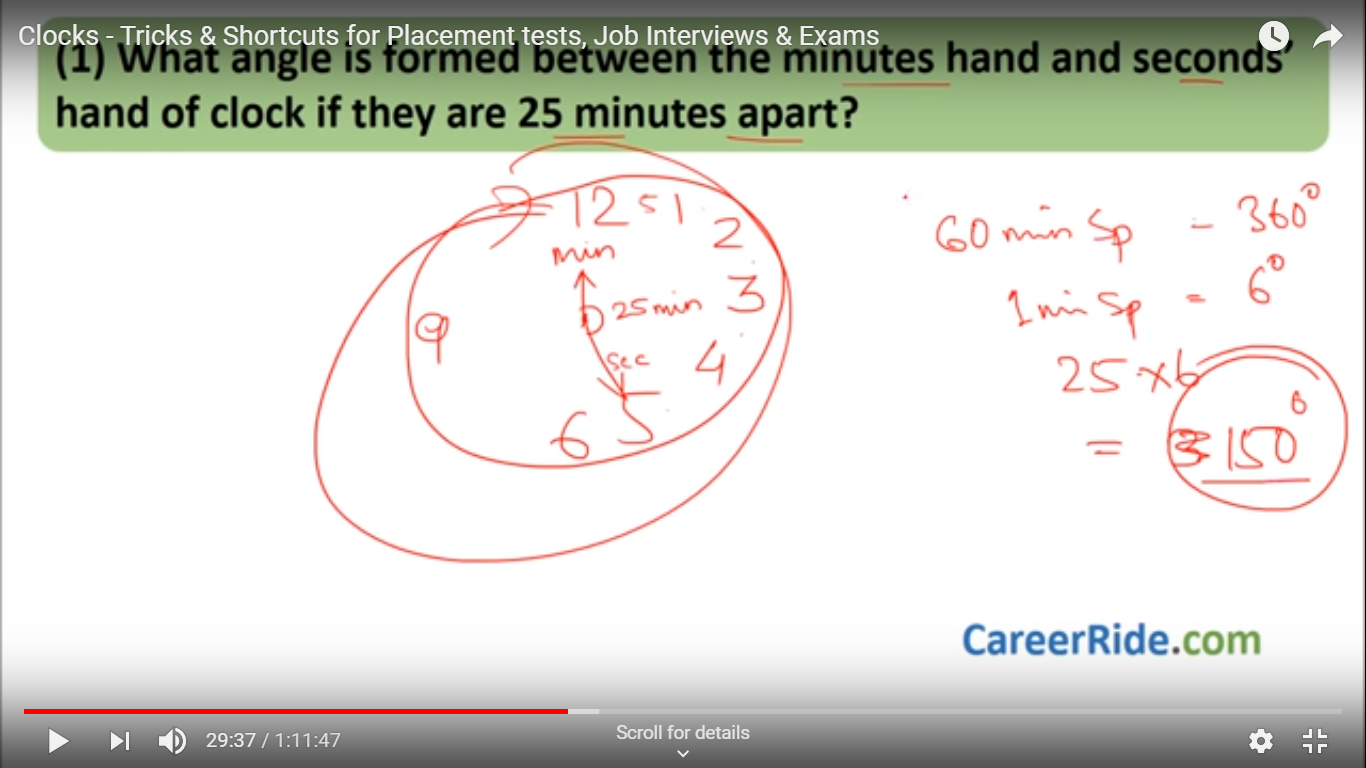 Clocks - Tricks & Shortcuts for Placement tests, Job Interviews & Exams
(1) What angle is formed between the minutes hand and seconds'
hand of clock if they are 25 minutes apart?
12 5 1
2
min
3
25 min
9
sec
4
5
6
60 min Sp - 360°
1 min Sp = 6°
25 × 6
= 150°
CareerRide.com
29:37 / 1:11:47
Scroll for details